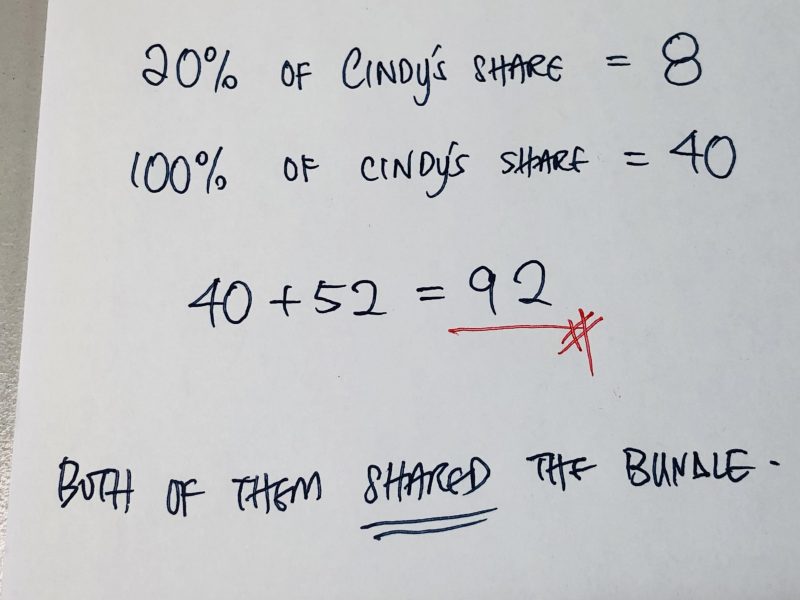 20% OF CINDY'S SHARE = 8
100% OF CINDY'S SHARE = 40
40 + 52 = 92
BOTH OF THEM SHARED THE BUNDLE.